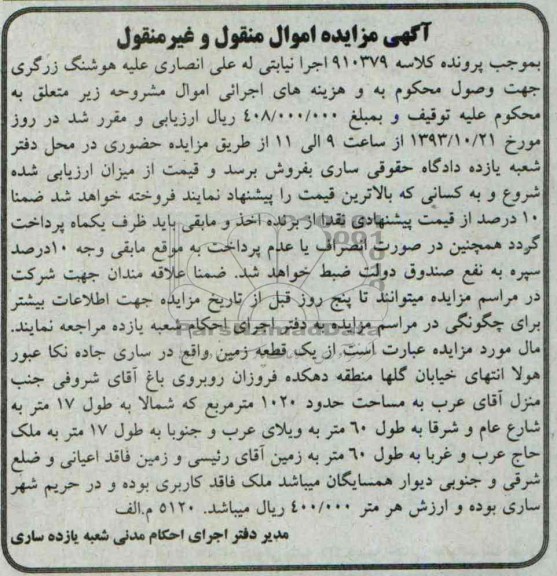 آگهی مزایده اموال منقول و غیرمنقول
بموجب پرونده کلاسه ۹۱۰۳۷۹ اجرا نیابتی له علی انصاری علیه هوشنگ زرگری
جهت وصول محکوم به و هزینه های اجرائی اموال مشروحه زیر متعلق به
محکوم علیه توقیف و بمبلغ ۴۰۸/۰۰۰/۰۰۰ ریال ارزیابی و مقرر شد در روز
مورخ ۱۳۹۳/۱۰/۲۱ از ساعت ۹ الی ۱۱ از طریق مزایده حضوری در محل دفتر
شعبه یازده دادگاه حقوقی ساری بفروش برسد و قیمت از میزان ارزیابی شده
شروع و به کسانی که بالاترین قیمت را پیشنهاد نمایند فروخته خواهد شد ضمنا
۱۰ درصد از قیمت پیشنهادی نقدا از برنده اخذ و مابقی باید ظرف یکماه پرداخت
گردد همچنین در صورت انصراف یا عدم پرداخت به موقع مابقی وجه ۱۰درصد
سپره به نفع صندوق دولت ضبط خواهد شد. ضمنا علاقه مندان جهت شرکت
در مراسم مزایده میتوانند تا پنج روز قبل از تاریخ مزایده جهت اطلاعات بیشتر
برای چگونگی در مراسم مزایده به دفتر اجرای احکام شعبه یازده مراجعه نمایند.
مال مورد مزایده عبارت است از یک قطعه زمین واقع در ساری جاده نکا عبور
هولا انتهای خیابان گلها منطقه دهکده فروزان روبروی باغ آقای شروفی جنب
منزل آقای عرب به مساحت حدود ۱۰۲۰ مترمربع که شمالا به طول ۱۷ متر به
شارع عام و شرقا به طول ۶۰ متر به ویلای عرب و جنوبا به طول ۱۷ متر به ملک
حاج عرب و غربا به طول ۶۰ متر به زمین آقای رئیسی و زمین فاقد اعیانی و ضلع
شرقی و جنوبی دیوار همسایگان میباشد ملک فاقد کاربری بوده و در حریم شهر
ساری بوده و ارزش هر متر ۴۰۰/۰۰۰ ریال میباشد. ۵۱۲۰ م.الف
مدیر دفتر اجرای احکام مدنی شعبه یازده ساری